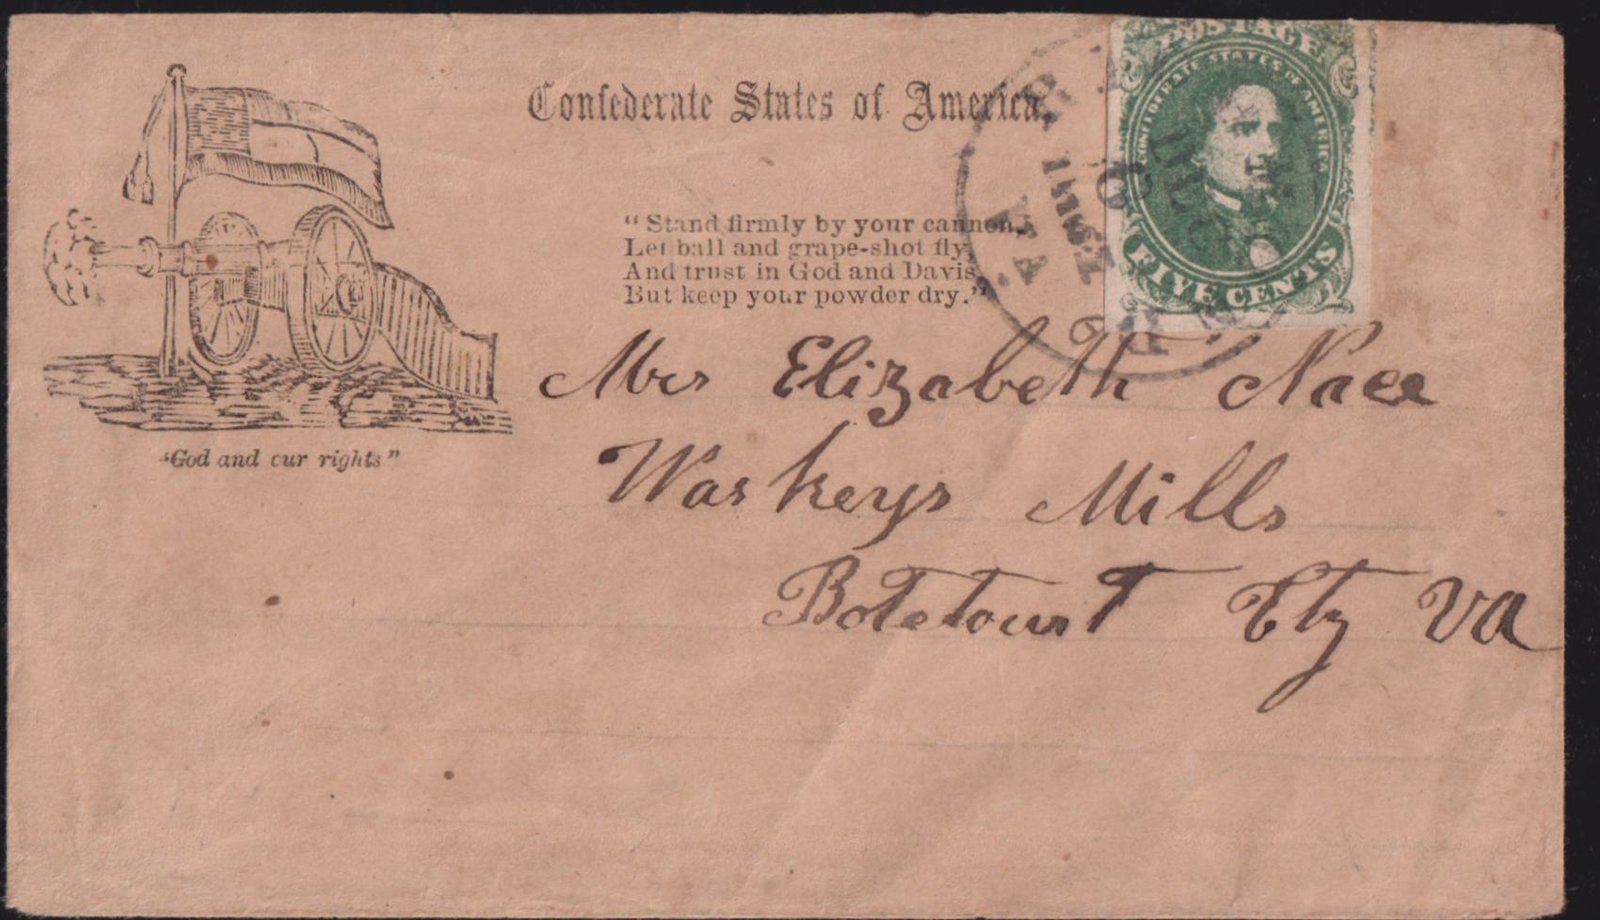 Confederate States of America.
"Stand firmly by your cannon,
Let ball and grape-shot fly,
And trust in God and Davis,
But keep your powder dry."
"God and our rights"
POSTAGE
CONFEDERATE STATES OF AMERICA
FIVE CENTS
DEC
1861
VA.
Mrs Elizabeth Nace
Waskeys Mills
Botetourt Cty Va